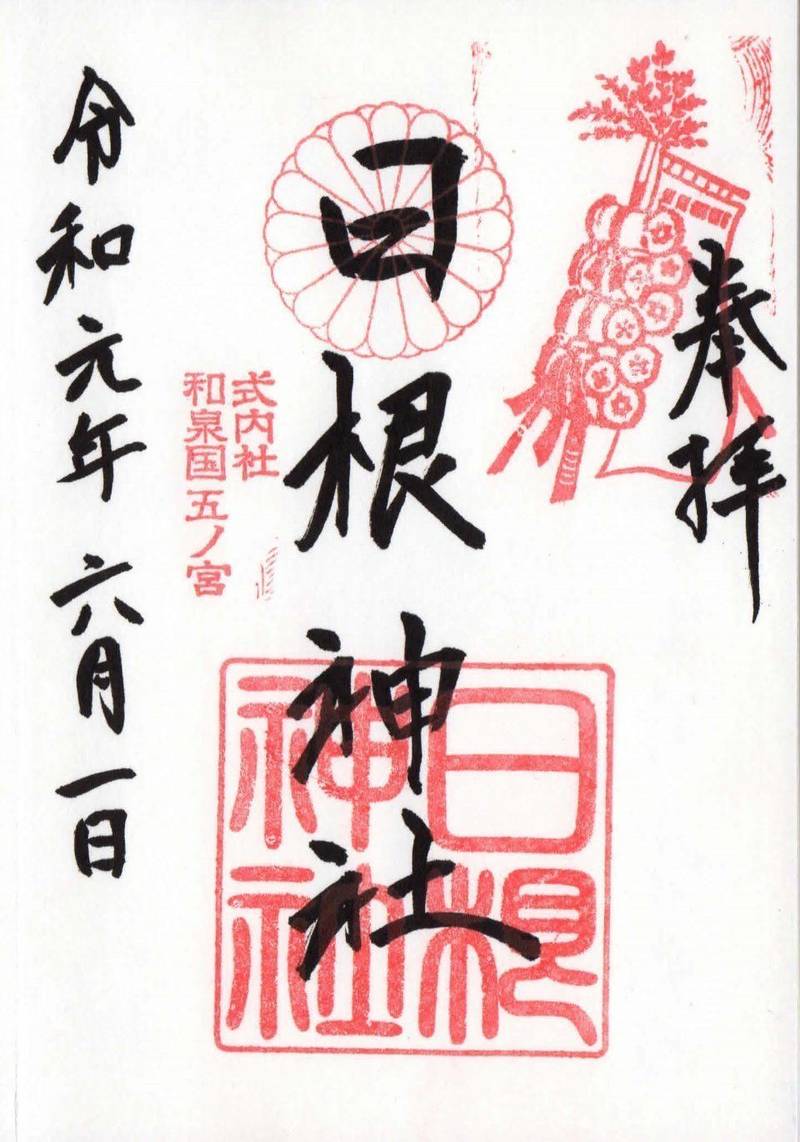 奉拝
日根神社
日根
神社
式内社
和泉国五ノ宮
令和元年 六月一日